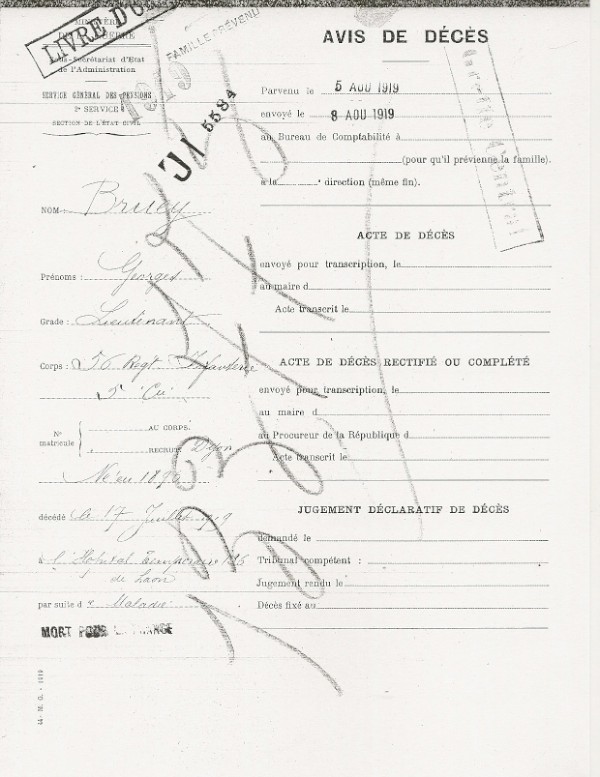 LIVRE D'O
MINISTÈRE
DE LA GUERRE
Sous-Secrétariat d'État
de l'Administration
SERVICE GÉNÉRAL DES PENSIONS
2e SERVICE
SECTION DE L'ÉTAT CIVIL
FAMILLE PRÉVENU
1919
5584
NOM: Bruey
Prénoms: Georges
Grade: Lieutenant
Corps: 56 Regt Infanterie
5e Cie
No matricule
AU CORPS.
RECRUT. Dijon
Né en 189
décédé le 17 Juillet 1919
à l'Hôpital Temporaire 126
de Laon
par suite de Maladie
MORT POUR LA FRANCE
44. M. G. - 1919
AVIS DE DÉCÈS
Parvenu le 5 AOU 1919
envoyé le 8 AOU 1919
au Bureau de Comptabilité à
(pour qu'il prévienne la famille).
à la direction (même fin).
Central
ACTE DE DÉCÈS
envoyé pour transcription, le
au maire d
Acte transcrit le
ACTE DE DÉCÈS RECTIFIÉ OU COMPLÉTÉ
envoyé pour transcription, le
au maire d
au Procureur de la République d
Acte transcrit le
JUGEMENT DÉCLARATIF DE DÉCÈS
demandé le
Tribunal compétent :
Jugement rendu le
Décès fixé au